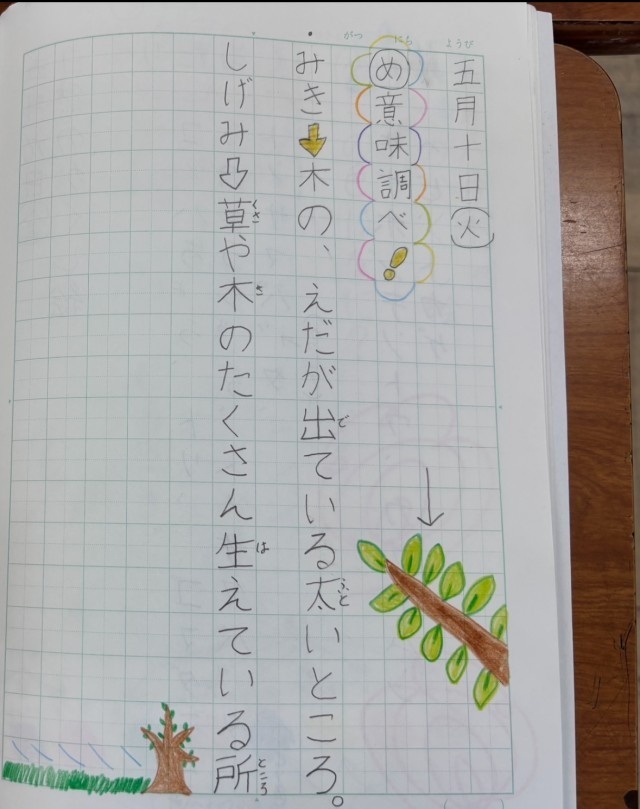 五月十日㊋
がつ にち ようび
め意味調べ!
みき⇩木の、えだが出ている太いところ。
で ふと
しげみ⇩草や木のたくさん生えている所
くさ き は ところ